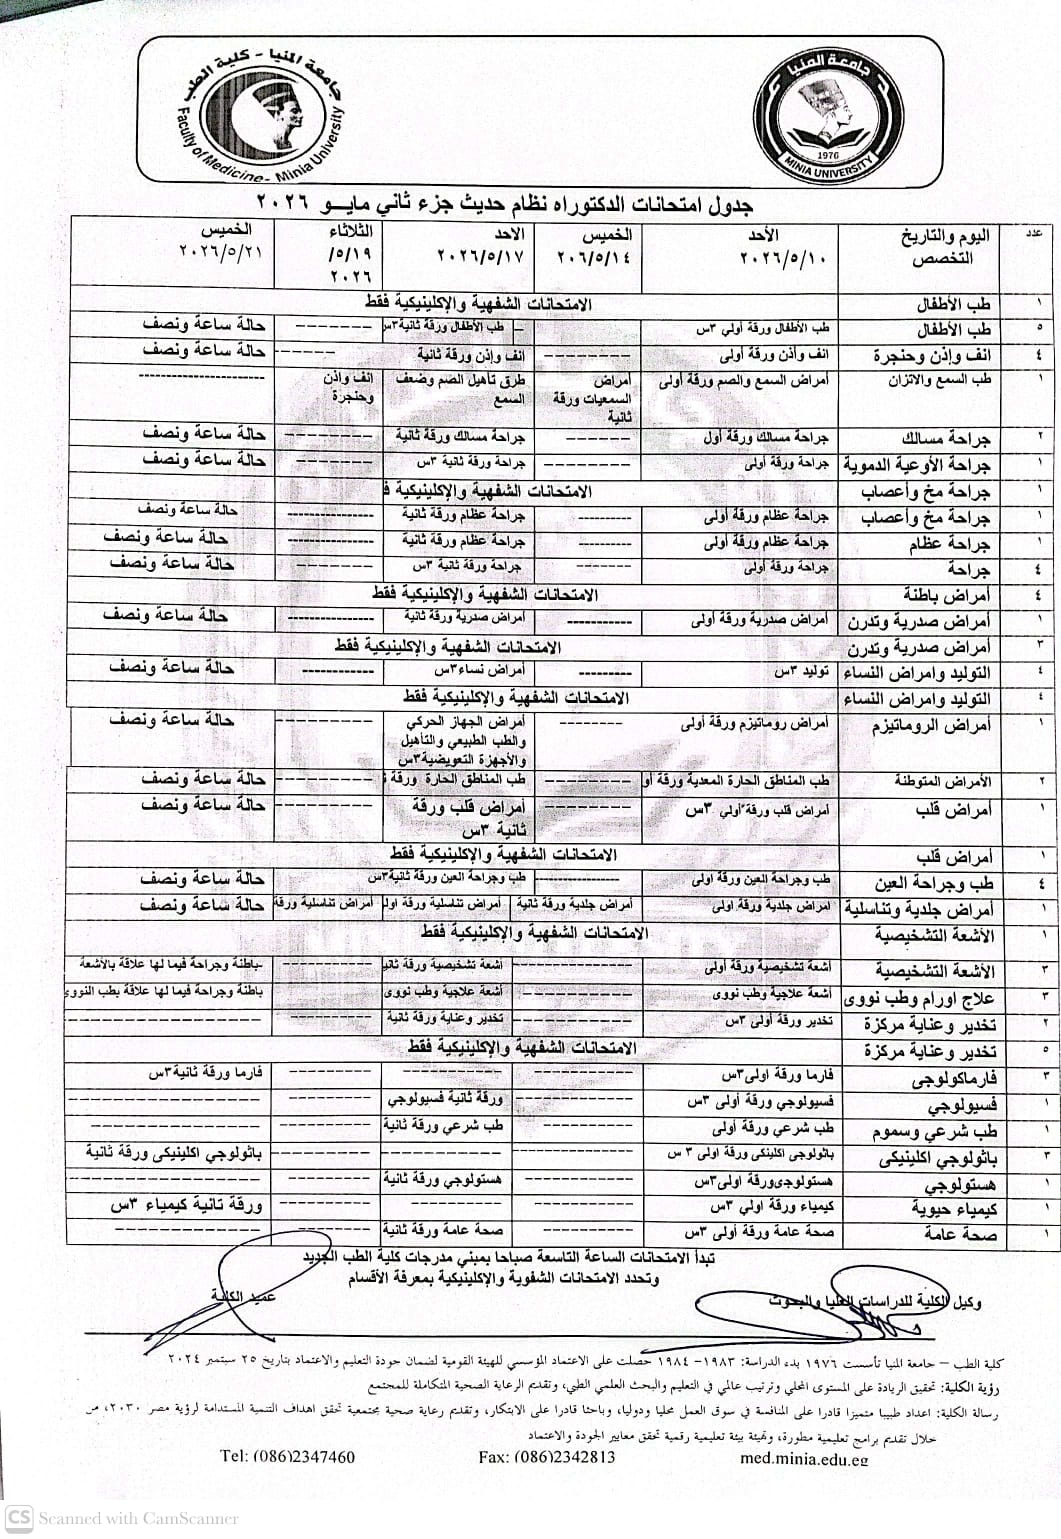 جامعة المنيا - كلية الطب
Faculty of Medicine - Minia University
جامعة المنيا
1976
MINIA UNIVERSITY
جدول امتحانات الدكتوراه نظام حديث جزء ثاني مايــو ٢٠٢٦
عدد اليوم والتاريخ التخصص الأحد ٢٠٢٦/٥/١٠ الخميس ٢٠٦/٥/١٤ الاحد ٢٠٢٦/٥/١٧ الثلاثاء ٥/١٩/ ٢٠٢٦ الخميس ٢٠٢٦/٥/٢١
١ طب الأطفال الامتحانات الشفهية والإكلينيكية فقط
٥ طب الأطفال طب الأطفال ورقة أولي ٣س طب الأطفال ورقة ثانية ٣س ------- حالة ساعة ونصف
٤ انف وإذن وحنجرة انف وأذن ورقة أولى --------- انف وإذن ورقة ثانية ------- حالة ساعة ونصف
١ طب السمع والاتزان أمراض السمع والصم ورقة أولى أمراض السمعيات ورقة ثانية طرق تأهيل الصم وضعف السمع انف وإذن وحنجرة -------------
٢ جراحة مسالك جراحة مسالك ورقة أول ------- جراحة مسالك ورقة ثانية --------- حالة ساعة ونصف
١ جراحة الأوعية الدموية جراحة ورقة أولى ------- جراحة ورقة ثانية ٣س -------- حالة ساعة ونصف
١ جراحة مخ وأعصاب الامتحانات الشفهية والإكلينيكية ف
١ جراحة مخ وأعصاب جراحة عظام ورقة أولى --------- جراحة عظام ورقة ثانية ------------- حالة ساعة ونصف
١ جراحة عظام جراحة عظام ورقة أولى --------- جراحة عظام ورقة ثانية ------------- حالة ساعة ونصف
٤ جراحة جراحة ورقة أولى ------- جراحة ورقة ثانية ٣س -------- حالة ساعة ونصف
٤ أمراض باطنة الامتحانات الشفهية والإكلينيكية فقط
١ أمراض صدرية وتدرن أمراض صدرية ورقة أولى ----------- أمراض صدرية ورقة ثانية ------------- حالة ساعة ونصف
٣ أمراض صدرية وتدرن الامتحانات الشفهية والإكلينيكية فقط
٤ التوليد وامراض النساء توليد ٣س --------- أمراض نساء٣س ----------- حالة ساعة ونصف
٤ التوليد وامراض النساء الامتحانات الشفهية والإكلينيكية فقط
١ أمراض الروماتيزم أمراض روماتيزم ورقة أولى ------- أمراض الجهاز الحركي والطب الطبيعي والتأهيل والأجهزة التعويضية٣س ---------- حالة ساعة ونصف
٢ الأمراض المتوطنة طب المناطق الحارة المعدية ورقة أو --------- طب المناطق الحارة ورقة ---------- حالة ساعة ونصف
١ أمراض قلب أمراض قلب ورقة أولي ٣س --------- أمراض قلب ورقة ثانية ٣س ---------- حالة ساعة ونصف
١ أمراض قلب الامتحانات الشفهية والإكلينيكية فقط
٤ طب وجراحة العين طب وجراحة العين ورقة اولى ------------- طب وجراحة العين ورقة ثانية٣س حالة ساعة ونصف
١ أمراض جلدية وتناسلية امراض جلدية ورقة اولى أمراض جلدية ورقة ثانية أمراض تناسلية ورقة اولى أمراض تناسلية ورقة حالة ساعة ونصف
١ الأشعة التشخيصية الامتحانات الشفهية والإكلينيكية فقط
٣ الأشعة التشخيصية أشعة تشخيصية ورقة أولى ------------- أشعة تشخيصية ورقة ثاني --------- -باطنة وجراحة فيما لها علاقة بالأشعة
٣ علاج اورام وطب نووى أشعة علاجية وطب نووى ------------ أشعة علاجية وطب نووى --------- باطنة وجراحة فيما لها علاقة بطب النووى
٢ تخدير وعناية مركزة تخدير ورقة أولى ٣س ------------ تخدير وعناية ورقة ثانية --------- -----------------
٥ تخدير وعناية مركزة الامتحانات الشفهية والإكلينيكية فقط
٣ فارماكولوجى فارما ورقة اولى٣س ------------ ----------- --------- فارما ورقة ثانية٣س
١ فسيولوجي فسيولوجي ورقة أولى ٣س ------------ ورقة ثانية فسيولوجي --------- -----------------
١ طب شرعي وسموم طب شرعي ورقة أولى ------------ طب شرعي ورقة ثانية --------- --------------
٣ باثولوجي اكلينيكى باثولوجى اكلينكى ورقة اولى ٣ س ------------- ----------- --------- باثولوجي اكلينيكى ورقة ثانية
١ هستولوجي هستولوجىورقة اولى٣س ------------ هستولوجي ورقة ثانية --------- -----------------
١ كيمياء حيوية كيمياء ورقة أولي ٣س ------------ ----------- --------- ورقة ثانية كيمياء ٣س
١ صحة عامة صحة عامة ورقة أولى ٣س ------------ صحة عامة ورقة ثانية --------- ------------
تبدأ الامتحانات الساعة التاسعة صباحا بمبني مدرجات كلية الطب الجديد
وتحدد الامتحانات الشفوية والإكلينيكية بمعرفة الأقسام
وكيل الكلية للدراسات العليا والبحوث
عميد الكلية
كلية الطب – جامعة المنيا تأسست ١٩٧٦ بدء الدراسة: ١٩٨٣- ١٩٨٤ حصلت على الاعتماد المؤسسي للهيئة القومية لضمان جودة التعليم والاعتماد بتاريخ ٢٥ سبتمبر ٢٠٢٤
رؤية الكلية: تحقيق الريادة على المستوى المحلي وترتيب عالمي في التعليم والبحث العلمي الطبي، وتقديم الرعاية الصحية المتكاملة للمجتمع
رسالة الكلية: اعداد طبيبا متميزا قادرا على المنافسة في سوق العمل محليا ودوليا، وباحثا قادرا على الابتكار، وتقديم رعاية صحية مجتمعية تحقق اهداف التنمية المستدامة لرؤية مصر ٢٠٣٠، من
خلال تقديم برامج تعليمية مطورة، وتهيئة بيئة تعليمية رقمية تحقق معايير الجودة والاعتماد
Tel: (086)2347460 Fax: (086)2342813 med.minia.edu.eg
CS Scanned with CamScanner